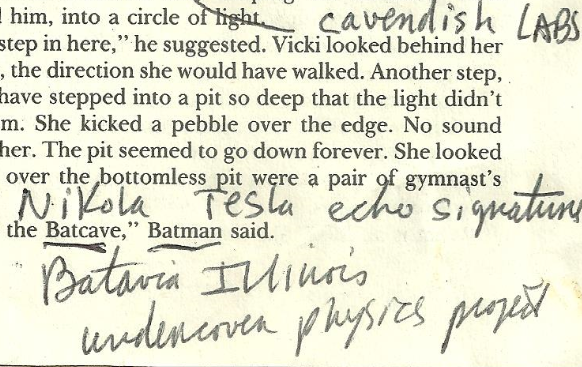 l him, into a circle of light.
cavendish LABS
step in here,” he suggested. Vicki looked behind her
, the direction she would have walked. Another step,
have stepped into a pit so deep that the light didn’t
m. She kicked a pebble over the edge. No sound
her. The pit seemed to go down forever. She looked
over the bottomless pit were a pair of gymnast’s
Nikola Tesla echo signature
the Batcave,” Batman said.
Batavia Illinois
undercover physics project